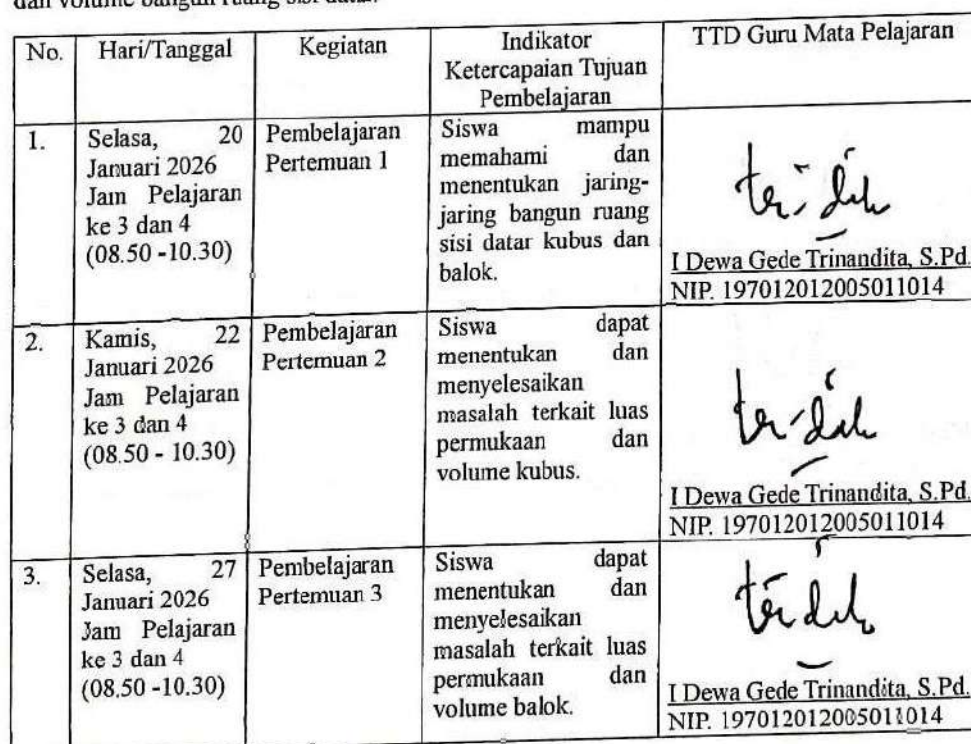 dan volume bangun ruang sisi datar.
No. Hari/Tanggal Kegiatan Indikator Ketercapaian Tujuan Pembelajaran TTD Guru Mata Pelajaran
1. Selasa, 20
Januari 2026
Jam Pelajaran
ke 3 dan 4
(08.50 -10.30)
Pembelajaran
Pertemuan 1
Siswa mampu
memahami dan
menentukan jaring-
jaring bangun ruang
sisi datar kubus dan
balok.
I Dewa Gede Trinandita, S.Pd.
NIP. 197012012005011014
2. Kamis, 22
Januari 2026
Jam Pelajaran
ke 3 dan 4
(08.50 - 10.30)
Pembelajaran
Pertemuan 2
Siswa dapat
menentukan dan
menyelesaikan
masalah terkait luas
permukaan dan
volume kubus.
I Dewa Gede Trinandita, S.Pd.
NIP. 197012012005011014
3. Selasa, 27
Januari 2026
Jam Pelajaran
ke 3 dan 4
(08.50 -10.30)
Pembelajaran
Pertemuan 3
Siswa dapat
menentukan dan
menyelesaikan
masalah terkait luas
permukaan dan
volume balok.
I Dewa Gede Trinandita, S.Pd.
NIP. 197012012005011014